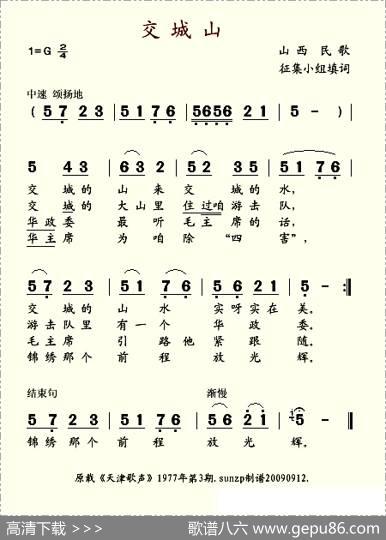 交城山
1=G 2/4
山西 民歌
征集小组填词
中速 颂扬地
( 5 7 2 3 | 5 1 7 6 | 5656 2 1 | 5 - )
5 4 3 | 6 3 2 | 5 2 3 5 | 5 1 7 6 |
交 城的 山来 交 城的 水,
交 城的 大山里 住过咱游击 队,
华政委 最听 毛主席的 话,
华主席 为咱 除“四 害”,
5 7 2 3 | 5 1 7 6 | 5 6 2 1 | 5 - :||
交 城的 山水 实呀实在 美。
游击队里 有一个 华政 委。
毛主席 引路他 紧跟 随。
锦绣那个 前程 放光 辉。
结束句
渐慢
5 7 2 3 | 5 1 7 6 | 5 6 2 1 | 5 - ||
锦绣那个 前程 放光 辉。
原载《天津歌声》1977年第3期. sunzp制谱20090912.
高清下载 >>>
歌谱八六 www.gepu86.com